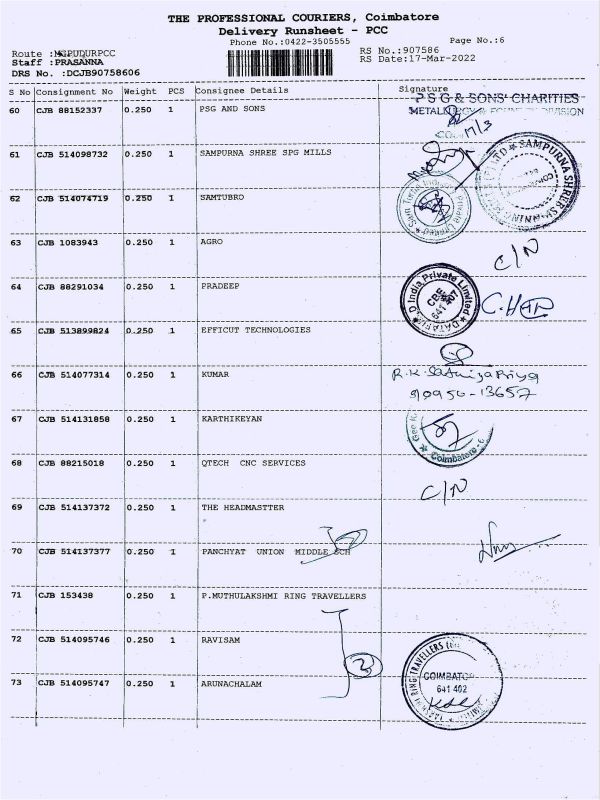 THE PROFESSIONAL COURIERS, Coimbatore
Delivery Runsheet - PCC
Phone No.:0422-3505555
Page No.:6
Route :MGPUDURPCC
RS No.:907586
Staff :PRASANNA
RS Date:17-Mar-2022
DRS No. :DCJB90758606
S No Consignment No Weight PCS Consignee Details Signature
PSG & SONS' CHARITIES
60 CJB 88152337 0.250 1 PSG AND SONS
DIVISION
61 CJB 514098732 0.250 1 SAMPURNA SHREE SPG MILLS
SAMPURNA SHREE SPINNING
62 CJB 514074719 0.250 1 SAMTUBRO
Private Limited
63 CJB 1083943 0.250 1 AGRO
C/N
64 CJB 88291034 0.250 1 PRADEEP
India Private Limited
65 CJB 513899824 0.250 1 EFFICUT TECHNOLOGIES
66 CJB 514077314 0.250 1 KUMAR
R.K.
90950-13657
67 CJB 514131858 0.250 1 KARTHIKEYAN
Coimbatore
68 CJB 88215018 0.250 1 QTECH CNC SERVICES
C/N
69 CJB 514137372 0.250 1 THE HEADMASTTER
70 CJB 514137377 0.250 1 PANCHYAT UNION MIDDLE SCH
71 CJB 153438 0.250 1 P.MUTHULAKSHMI RING TRAVELLERS
72 CJB 514095746 0.250 1 RAVISAM
RING TRAVELLERS
COIMBATORE
641 402
73 CJB 514095747 0.250 1 ARUNACHALAM